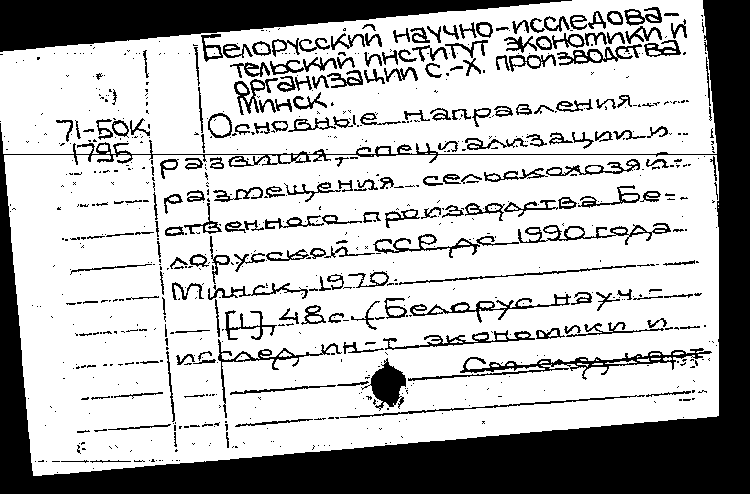 Белорусский научно-исследова-
тельский институт экономики и
организации с.-х. производства.
Минск.
71-БОК
1795
Основные направления
развития, специализации и
размещения сельскохозяй-
ственного производства Бе-
лорусской ССР до 1990 года
Минск, 1970.
[1], 48 с. (Белорус. науч.-
исслед. ин-т экономики и
См. след. карт